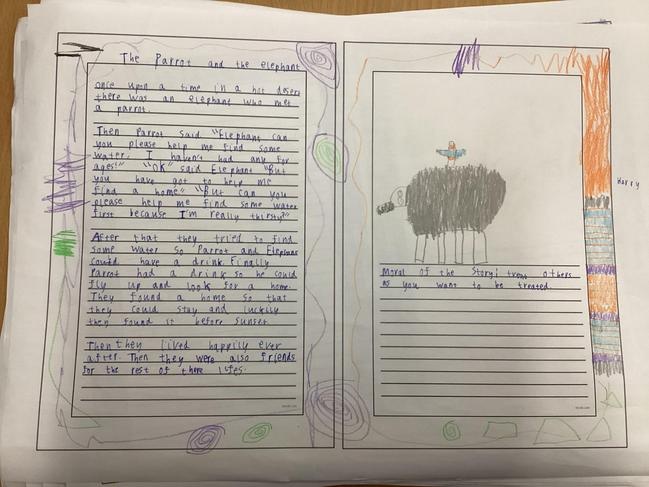 The Parrot and the elephant
once upon a time in a hot desert
there was an elephant who met
a parrot.
Then Parrot said "Elephant can
you please help me find some
water. I haven't had any for
ages!" "OK" said Elephant "But
you have got to help me
find a home." "But can you
please help me find some water
first because I'm really thirsty?"
After that they tried to find
some water so Parrot and Elephant
could have a drink. Finally
Parrot had a drink so he could
fly up and look for a home.
They found a home so that
they could stay and luckily
they found it before sunset.
Then they lived happily ever
after. Then they were also friends
for the rest of there lifes.
Moral of the Story: treat others
as you want to be treated.
Harry